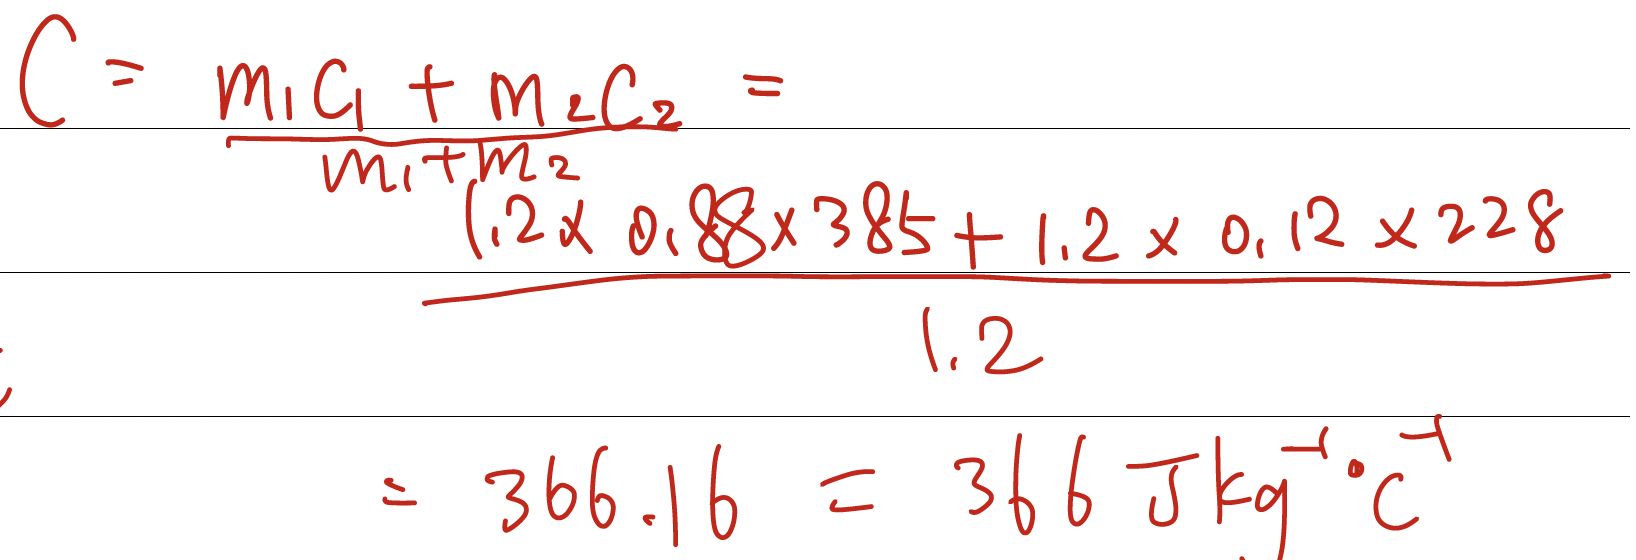 C = (m₁C₁ + m₂C₂)/(m₁+m₂) =
(1.2 × 0.88 × 385 + 1.2 × 0.12 × 228)/1.2
= 366.16 = 366 J kg⁻¹ °C⁻¹